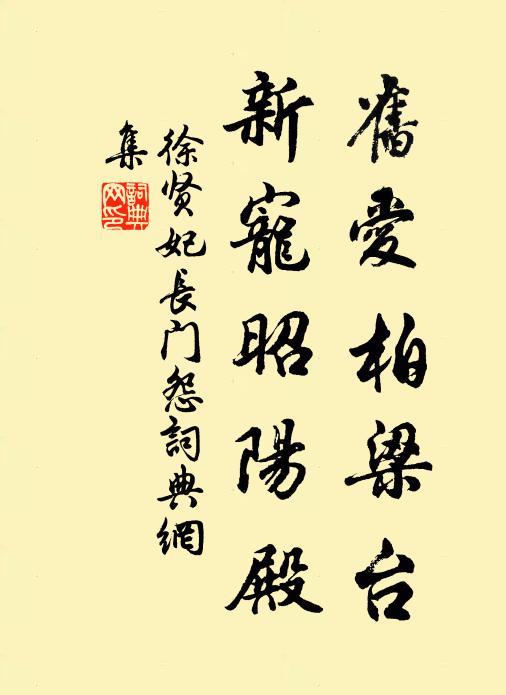 舊愛柏梁台
新寵昭陽殿
徐贤妃長门怨詞典網
集
詞典网印